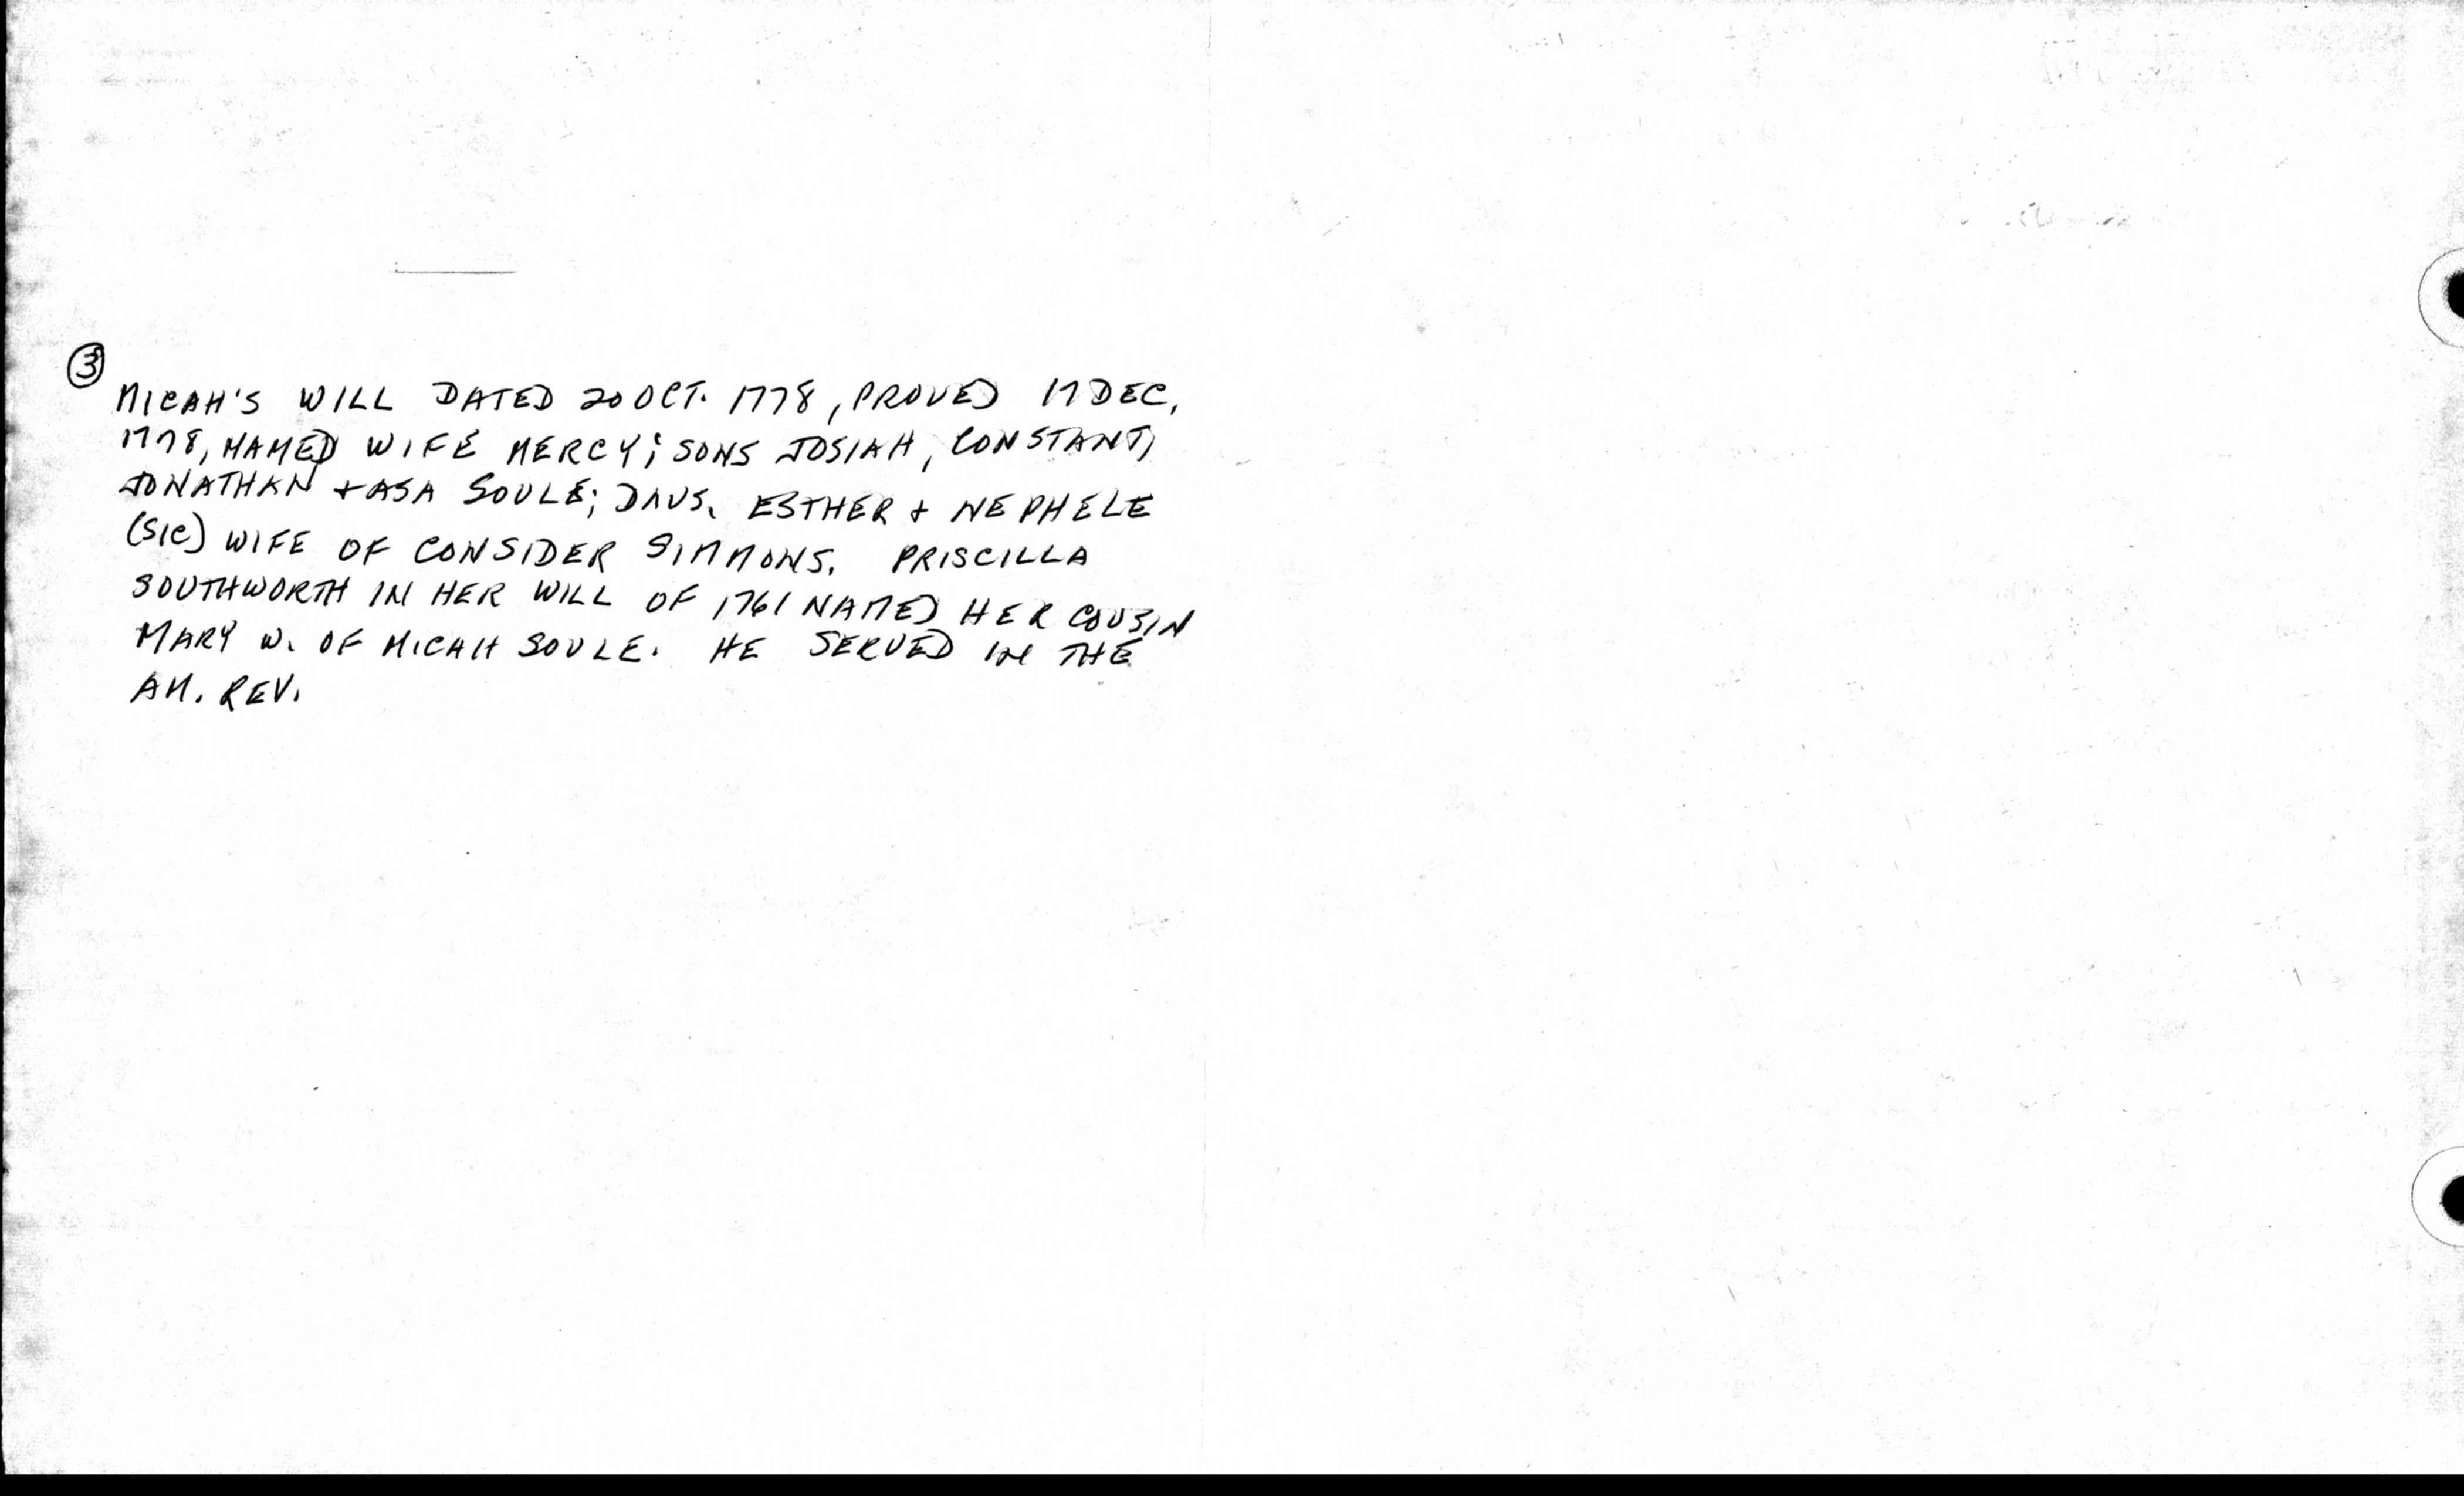 ③
MICAH'S WILL DATED 20 OCT. 1778, PROVED 17 DEC,
1778, NAMED WIFE MERCY; SONS JOSIAH, CONSTANT,
JONATHAN + ASA SOULE; DAUS. ESTHER + NEPHELE
(SIC) WIFE OF CONSIDER SIMMONS. PRISCILLA
SOUTHWORTH IN HER WILL OF 1761 NAMED HER COUSIN
MARY W. OF MICAH SOULE. HE SERVED IN THE
AM. REV.